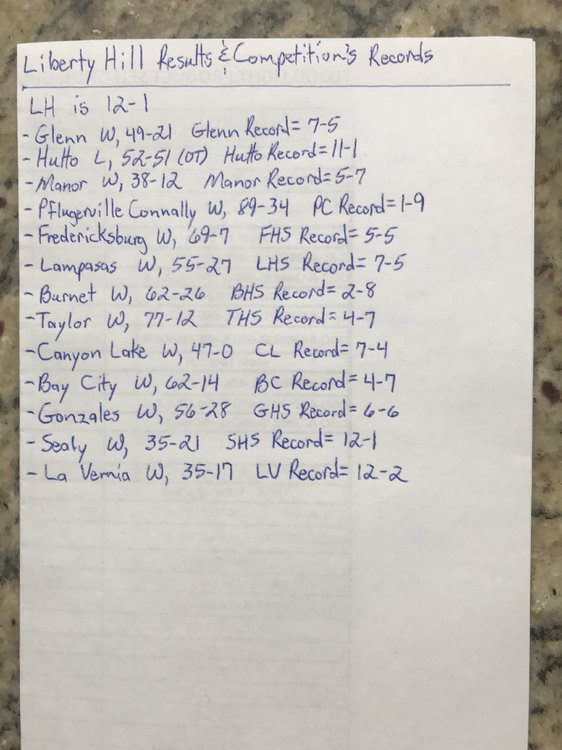 Liberty Hill Results & Competition's Records
LH is 12-1
- Glenn W, 49-21 Glenn Record= 7-5
- Hutto L, 52-51 (OT) Hutto Record= 11-1
- Manor W, 38-12 Manor Record= 5-7
- Pflugerville Connally W, 89-34 PC Record= 1-9
- Fredericksburg W, 69-7 FHS Record= 5-5
- Lampasas W, 55-27 LHS Record= 7-5
- Burnet W, 62-26 BHS Record= 2-8
- Taylor W, 77-12 THS Record= 4-7
- Canyon Lake W, 47-0 CL Record= 7-4
- Bay City W, 62-14 BC Record= 4-7
- Gonzales W, 56-28 GHS Record= 6-6
- Sealy W, 35-21 SHS Record= 12-1
- La Vernia W, 35-17 LV Record= 12-2